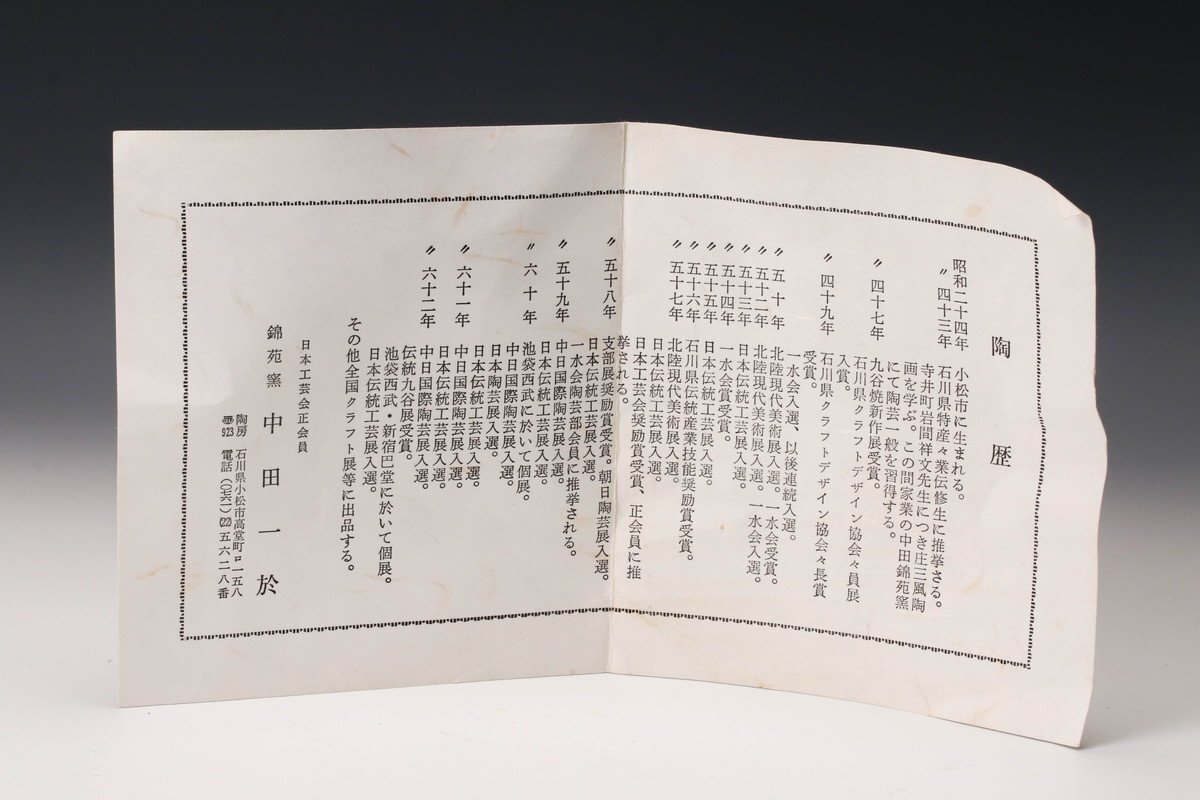 陶歴
昭和二十四年 小松市に生まれる。
〃 四十三年 石川県特産々業伝修生に推挙さる。
寺井町岩間祥文先生につき庄三風陶
画を学ぶ。この間家業の中田錦苑窯
にて陶芸一般を習得する。
〃 四十七年 九谷焼新作展受賞。
石川県クラフトデザイン協会々員展
入賞。
〃 四十九年 石川県クラフトデザイン協会々長賞
受賞。
一水会入選、以後連続入選。
〃 五十年 北陸現代美術展入選。一水会受賞。
〃 五十二年 北陸現代美術展入選。一水会入選。
〃 五十三年 日本伝統工芸展入選。
〃 五十四年 一水会賞受賞。
〃 五十五年 日本伝統工芸展入選。
〃 五十六年 石川県伝統産業技能奨励賞受賞。
〃 五十七年 北陸現代美術展入選。
日本伝統工芸展入選。
日本工芸会奨励賞受賞、正会員に推
挙される。
〃 五十八年 支部展奨励賞受賞。朝日陶芸展入選。
日本伝統工芸展入選。
一水会陶芸部会員に推挙される。
〃 五十九年 中日国際陶芸展入選。
日本伝統工芸展入選。
〃 六十年 池袋西武に於いて個展。
中日国際陶芸展入選。
日本陶芸展入選。
日本伝統工芸展入選。
〃 六十一年 中日国際陶芸展入選。
日本伝統工芸展入選。
〃 六十二年 中日国際陶芸展入選。
伝統九谷展受賞。
池袋西武・新宿巴堂に於いて個展。
日本伝統工芸展入選。
その他全国クラフト展等に出品する。
日本工芸会正会員
錦苑窯 中田一於
陶房 石川県小松市高堂町ロ一五八
〠923 電話(〇七六一)(22)五六二八番